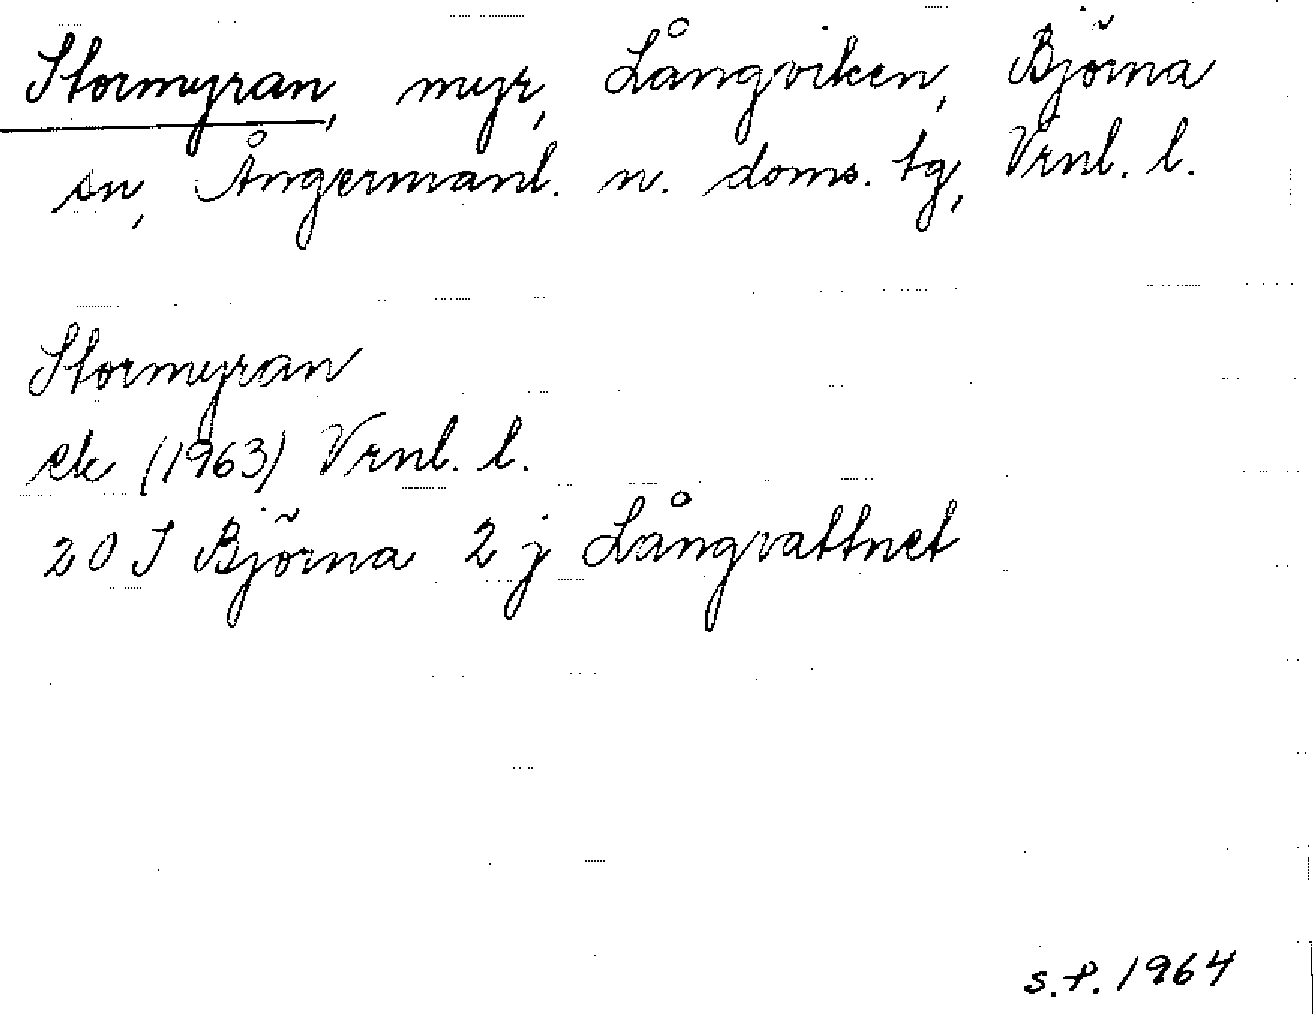 Stormyran, myr, Långviken, Björna
sn, Ångermanl. n. doms. tg, Vrnl. l.
Stormyran
ek (1963) Vrnl. l.
20 I Björna 2 j Långvattnet
s.f. 1964